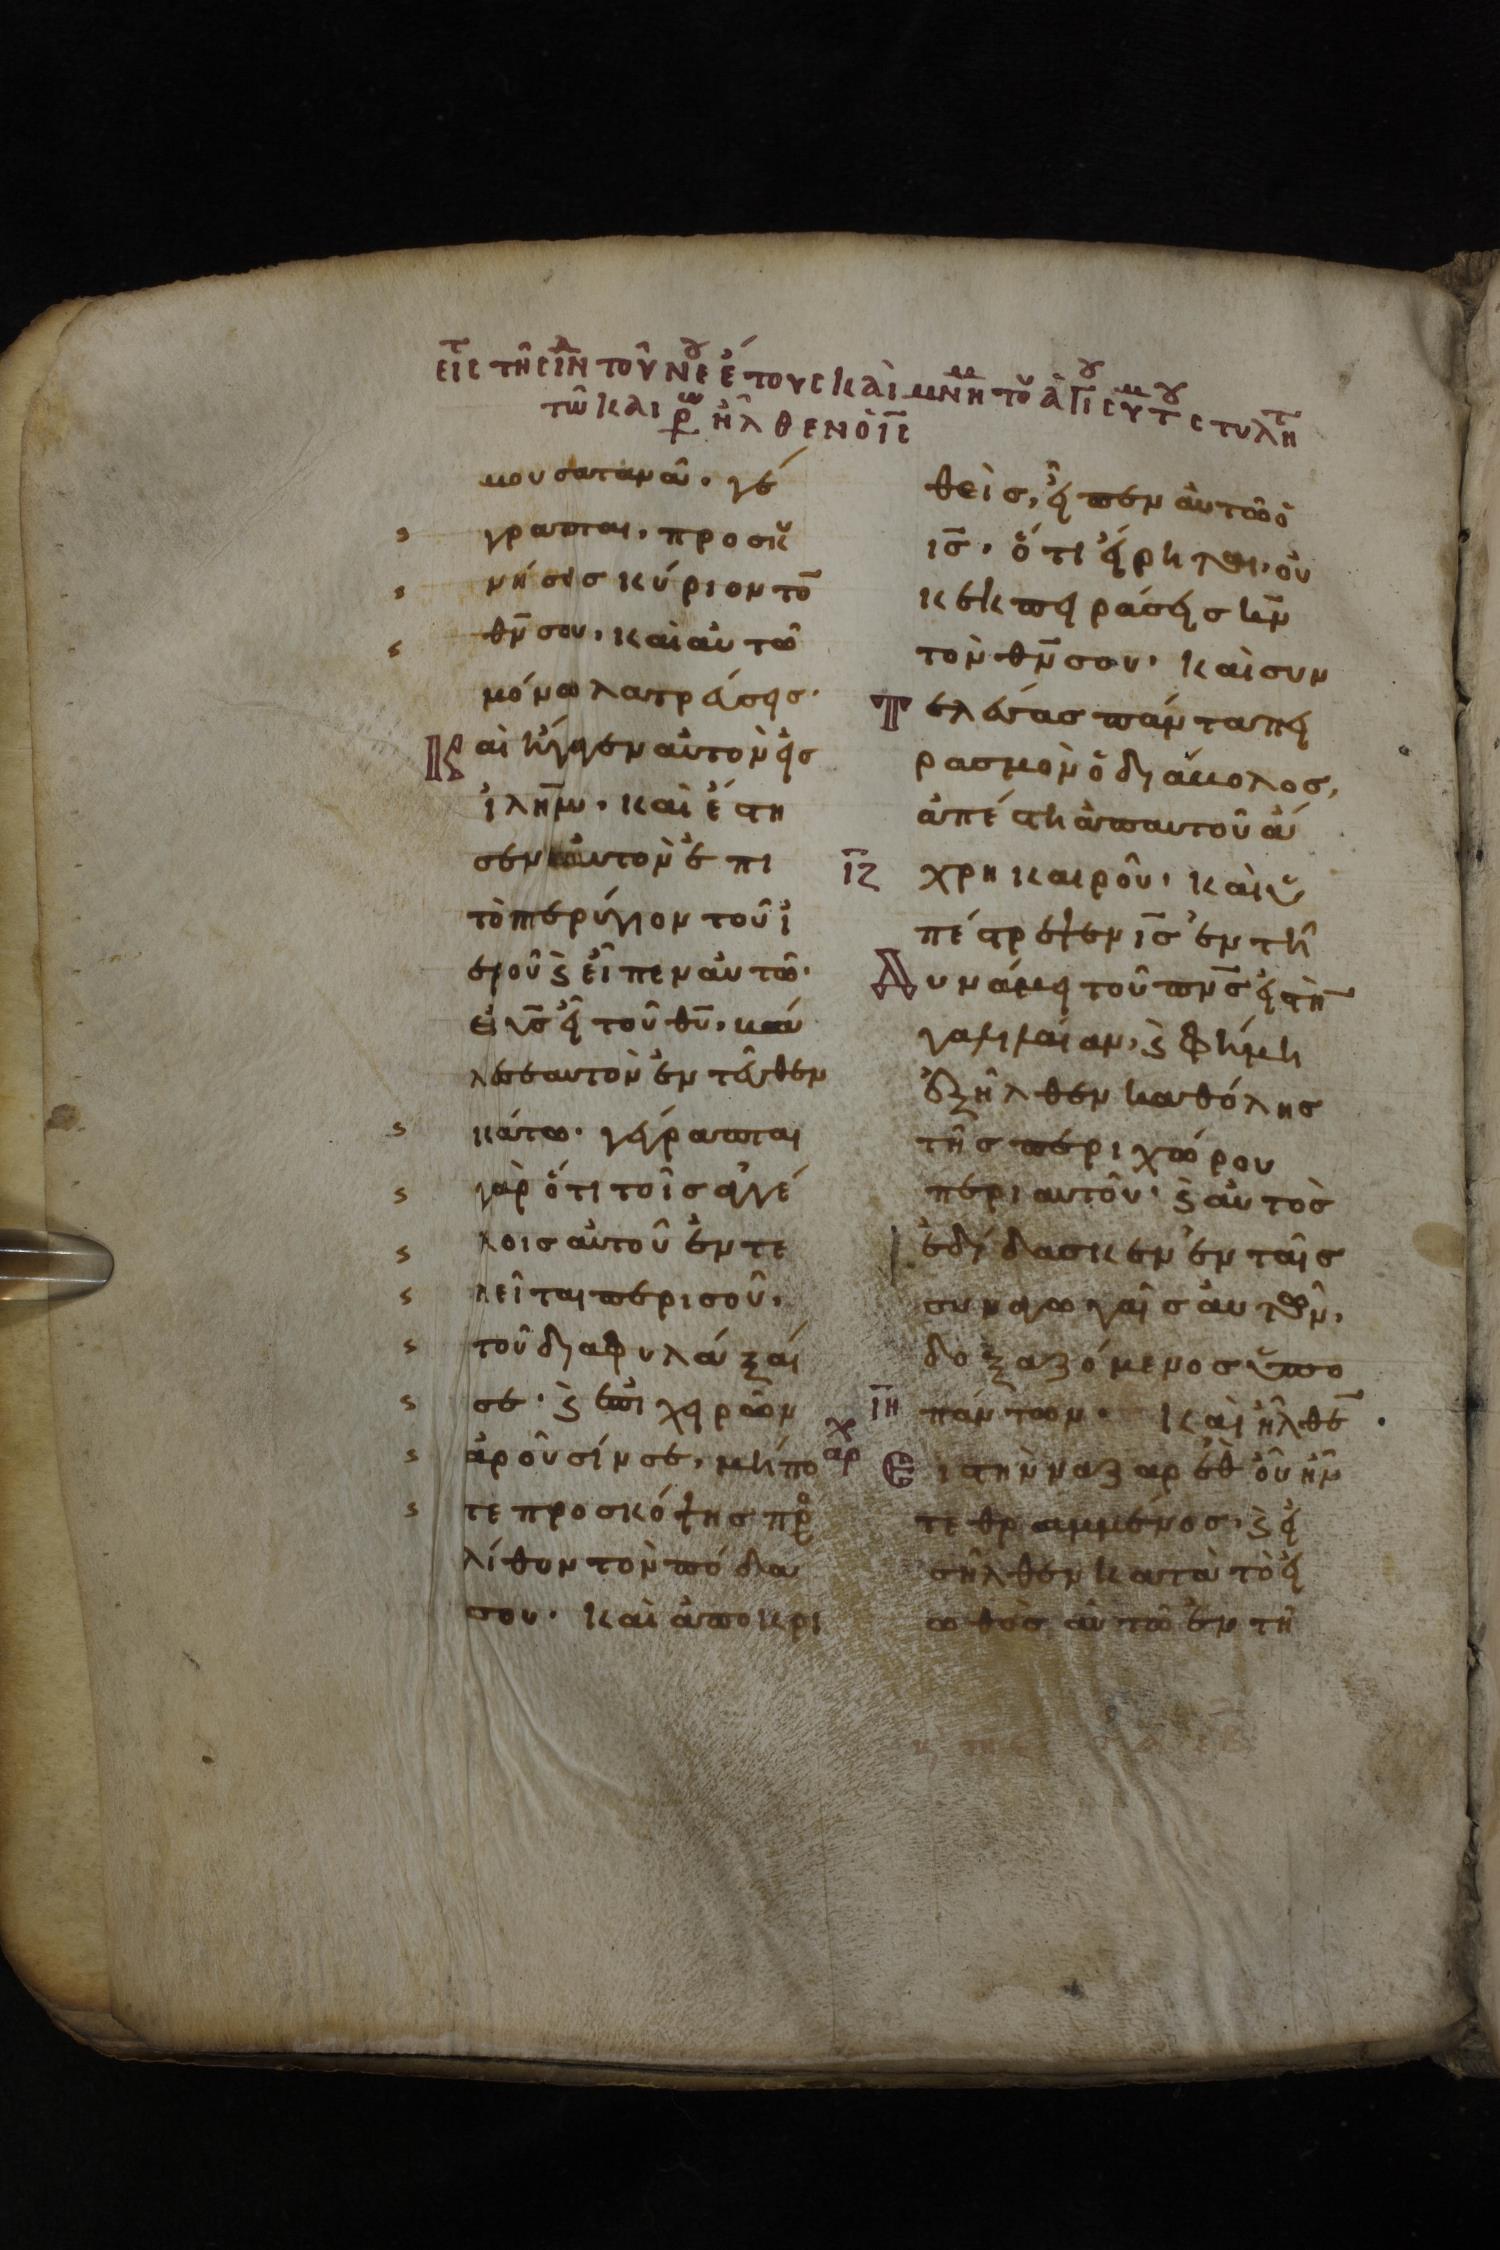 εἰς τ τῆς ἰν δ τοῦ νε ου ἔτους καὶ μνημ τοῦ ἁγί ου συμε ου στυλητ
τῶ καιρ ω ἦλθεν ὁ ις
μου σατανᾶ· γέ
γραπται, προσκυ
νήσεις κύριον το
θν σου, καὶ αὐτῶ
μόνω λατρεύσεις·
Καὶ ἤγαγεν αὐτὸν εἰς
ἰλημ· καὶ ἔστη
σεν αὐτὸν ἐπι
τὸ πτερύγιον τοῦ ἱ
εροῦ ϗ εἶπεν αὐτῶ·
εἰ υς εἶ τοῦ θυ, κάτω
κάτω· γέγραπται
γὰρ ὅτι τοῖς ἀγγέ
λοις αὐτοῦ ἐντε
λεῖται περι σοῦ,
τοῦ διαφυλάξαί
σε· ϗ ἐπι χειρῶν
ἀροῦσίν σε, μήπο
τε προσκόψης πρ
λίθον τὸν πόδα
σου· καὶ ἀποκρι
θεὶς, εἶπεν αὐτῶ ὁ
ις· ὅτι εἴρηται· οὐ
κ ἐκπειράσεις κν
τὸν θν σου· καὶ συν
Τελέσας πάντα πει
ρασμὸν ὁ διάβολος,
ἀπέστη ἀπ αυτοῦ ἄ
ιζ χρη καιροῦ· καὶ ὑ
πέστρεψεν ις ἐν τῆ
Δυνάμει τοῦ πνς εἰς τὴν
γαλιλαίαν, ϗ φήμη
ἐξῆλθεν καθόλης
τῆς περιχώρου
περι αυτοῦ· ϗ αὐτὸς
ἐδίδασκεν ἐν ταῖς
συναγωγαῖς αὐτῶν,
δοξαζόμενος ὑπο
ιη πάντων· Καὶ ἦλθε
αρχ Εἰς τὴν ναζαρὲθ οὗ ἦν
τεθραμμένος, ϗ εἰ
σῆλθεν κατὰ τὸ εἰ
ωθὸς αὐτῶ ἐν τῆ